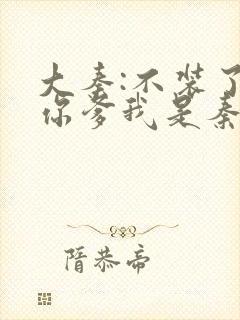 大秦:不装了
你爹我是秦
隋恭帝